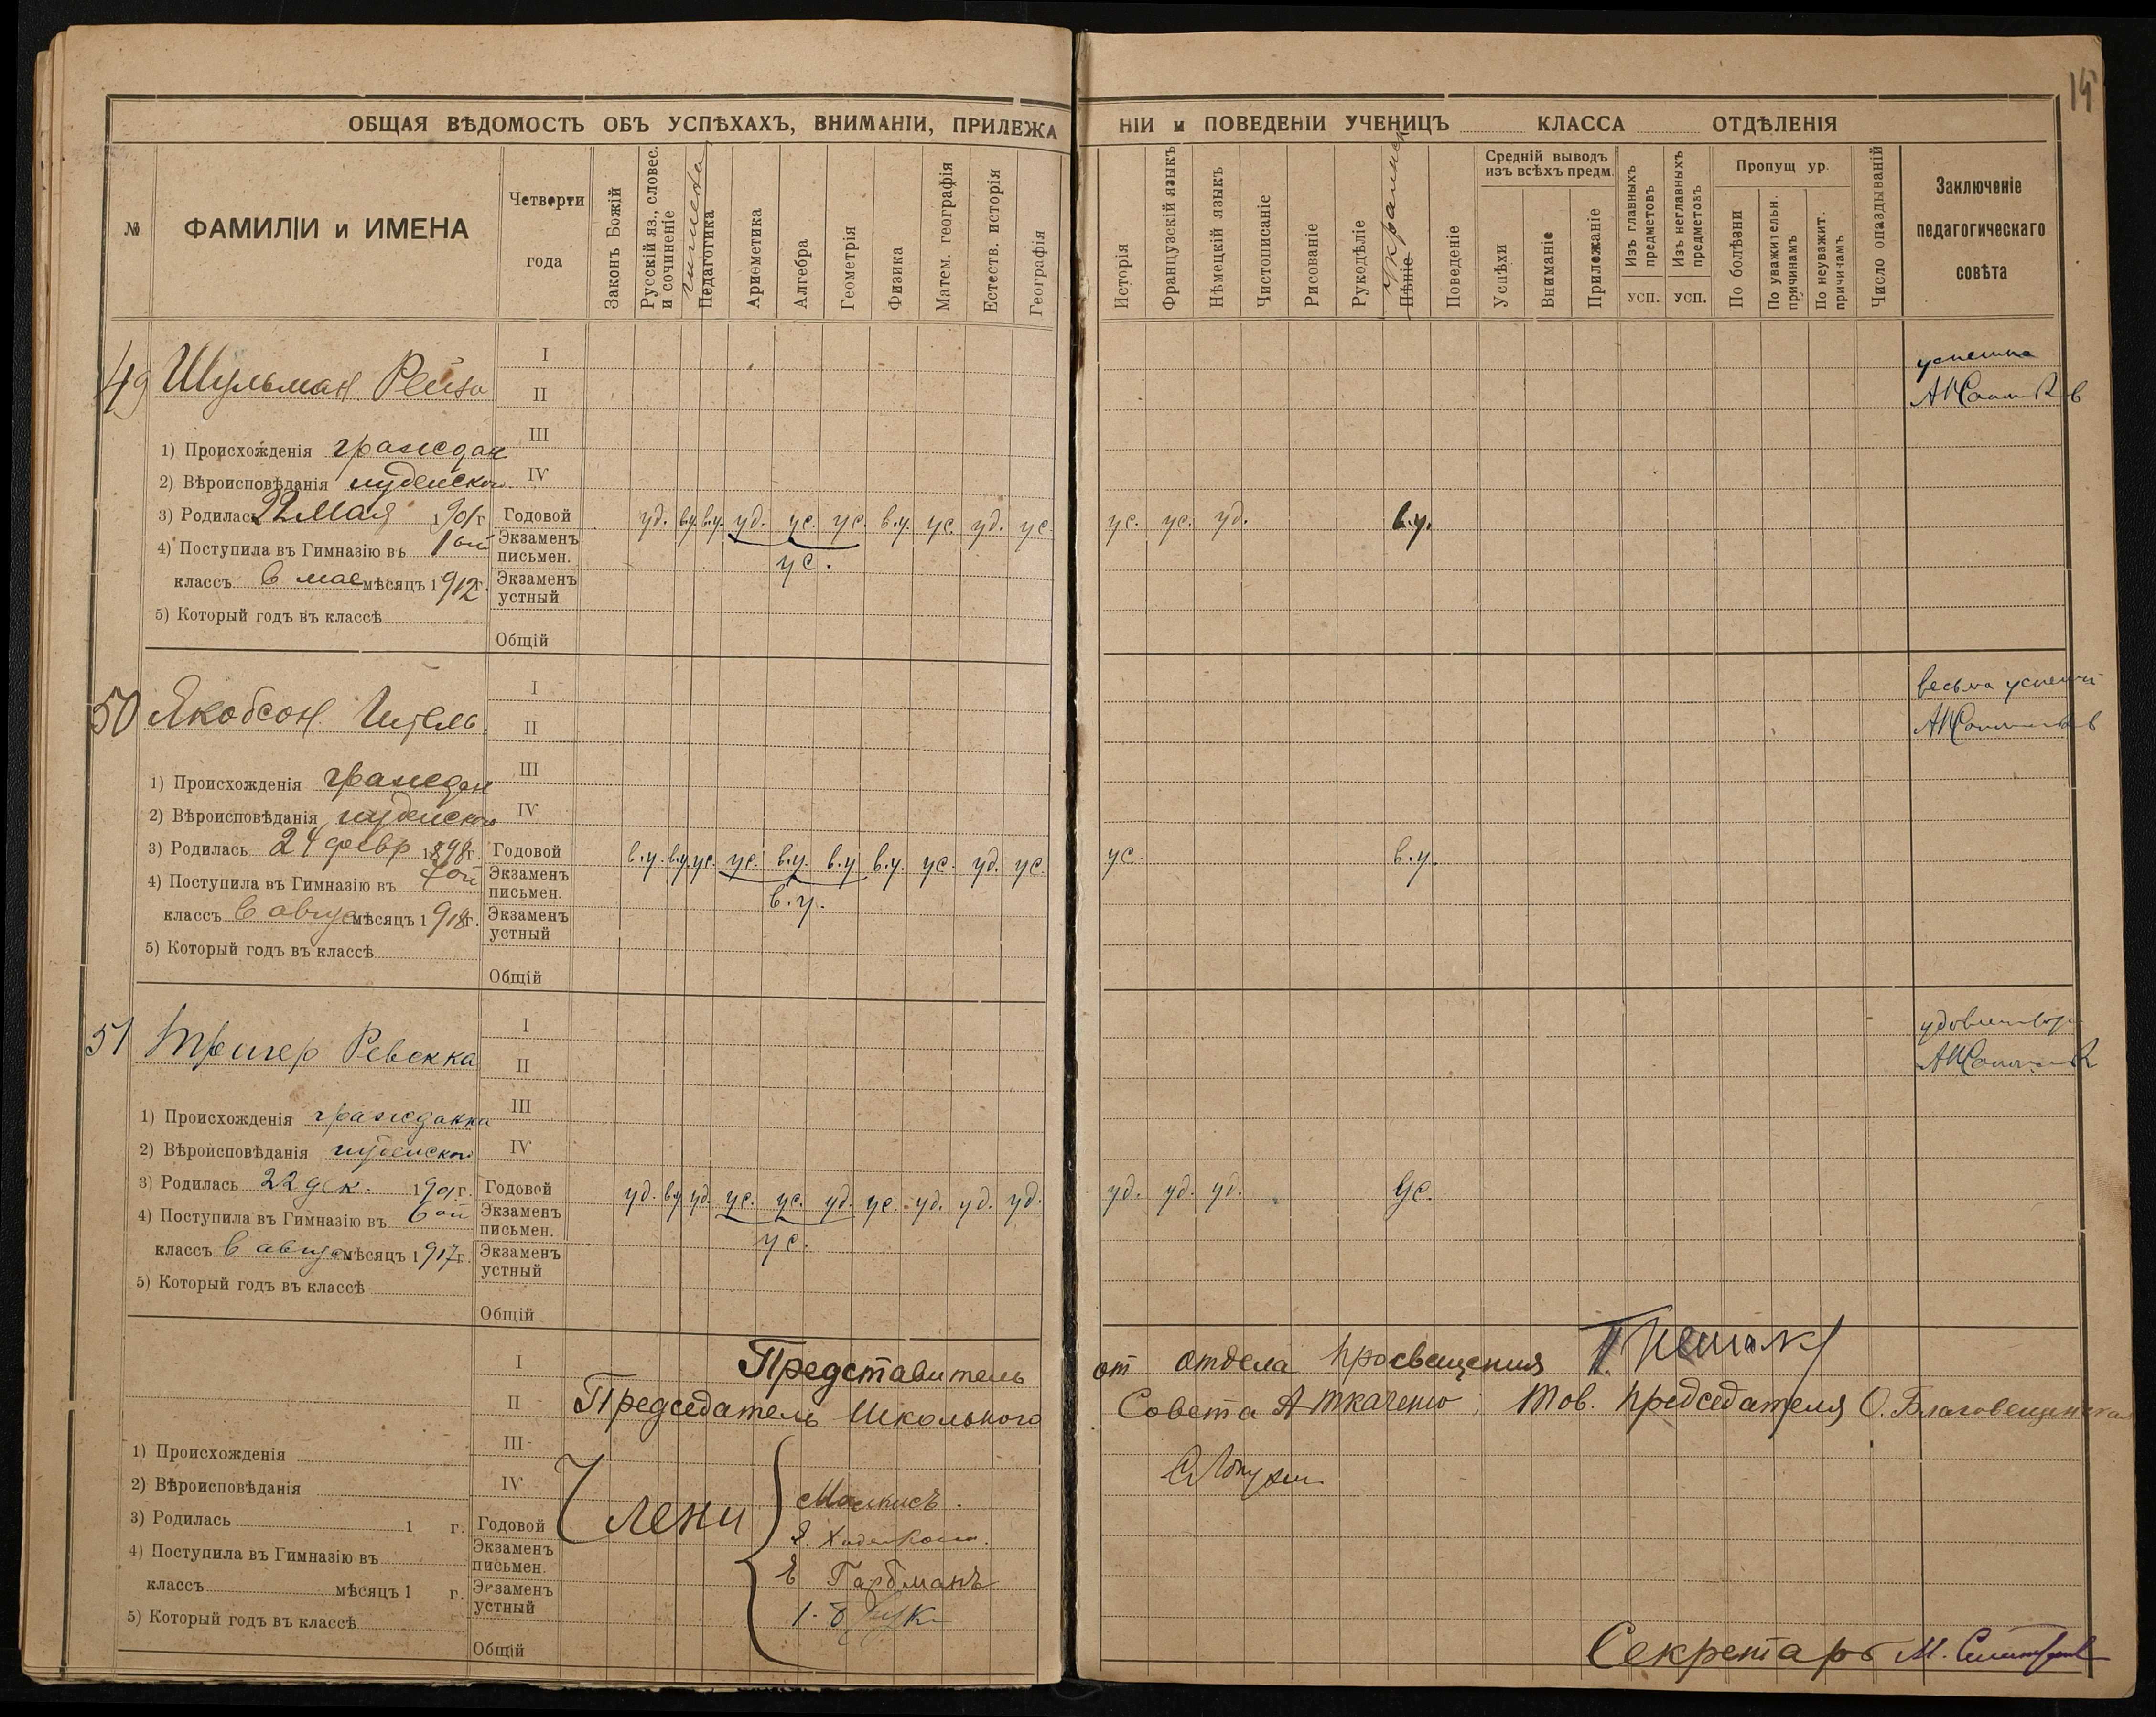 15
ОБЩАЯ ВѢДОМОСТЬ ОБЪ УСПѢХАХЪ, ВНИМАНІИ, ПРИЛЕЖА
НІИ и ПОВЕДЕНІИ УЧЕНИЦЪ КЛАССА ОТДѢЛЕНІЯ
№
ФАМИЛІИ и ИМЕНА
Четверти
года
Законъ Божій
Русскій яз., словес. и сочиненіе
гигиена
Педагогика
Ариѳметика
Алгебра
Геометрія
Физика
Матем. географія
Естеств. исторія
Географія
Исторія
Французскій языкъ
Нѣмецкій языкъ
Чистописаніе
Рисованіе
Рукодѣліе
Пѣніе
Поведеніе
Средній выводъ
изъ всѣхъ предм.
Успѣхи
Вниманіе
Прилежаніе
Изъ главныхъ предметовъ
усп.
Изъ неглавныхъ предметовъ
усп.
Пропущ ур.
По болѣзни
По уважительн. причинамъ
По неуважит. причинамъ
Число опаздываній
Заключеніе
педагогическаго
совѣта
49 Шульман Рейза
1) Происхожденія граждан
2) Вѣроисповѣданія иудейского
3) Родилась 22 Мая 1901 г
4) Поступила въ Гимназію въ 1 ой
классъ в мае мѣсяцъ 1912 г.
5) Который годъ въ классѣ
I
II
III
IV
Годовой уд. в.у. в.у. уд. ус. ус. в.у. ус. уд. ус. ус. ус. уд. в.у.
Экзаменъ письмен. ус.
Экзаменъ устный
Общій
успешно
50 Якобсон Гитель
1) Происхожденія граждан
2) Вѣроисповѣданія иудейского
3) Родилась 24 февр 1898 г.
4) Поступила въ Гимназію въ 7 ой
классъ в авгус мѣсяцъ 1918 г.
5) Который годъ въ классѣ
I
II
III
IV
Годовой в.у. в.у. ус. ус. в.у. в.у в.у. ус. уд. ус. ус. в.у.
Экзаменъ письмен. в.у.
Экзаменъ устный
Общій
весьма успешн
51 Тригер Ревекка
1) Происхожденія гражданки
2) Вѣроисповѣданія иудейского
3) Родилась 22 дек. 1901 г.
4) Поступила въ Гимназію въ 6 ой
классъ в авгус мѣсяцъ 1917 г.
5) Который годъ въ классѣ
I
II
III
IV
Годовой уд. в.у уд. ус. ус. уд. ус. уд. уд. уд. уд. уд. уд. ус.
Экзаменъ письмен. ус.
Экзаменъ устный
Общій
1) Происхожденія
2) Вѣроисповѣданія
3) Родилась 1 г.
4) Поступила въ Гимназію въ
классъ мѣсяцъ 1 г.
5) Который годъ въ классѣ
I
II
III
IV
Годовой
Экзаменъ письмен.
Экзаменъ устный
Общій
Представитель от отдела просвещения
Председатель Школьного Совета А Ткаченко; Тов. председателя О. Благовещенская
Члени
Е Гарбманъ
Секретарь М.